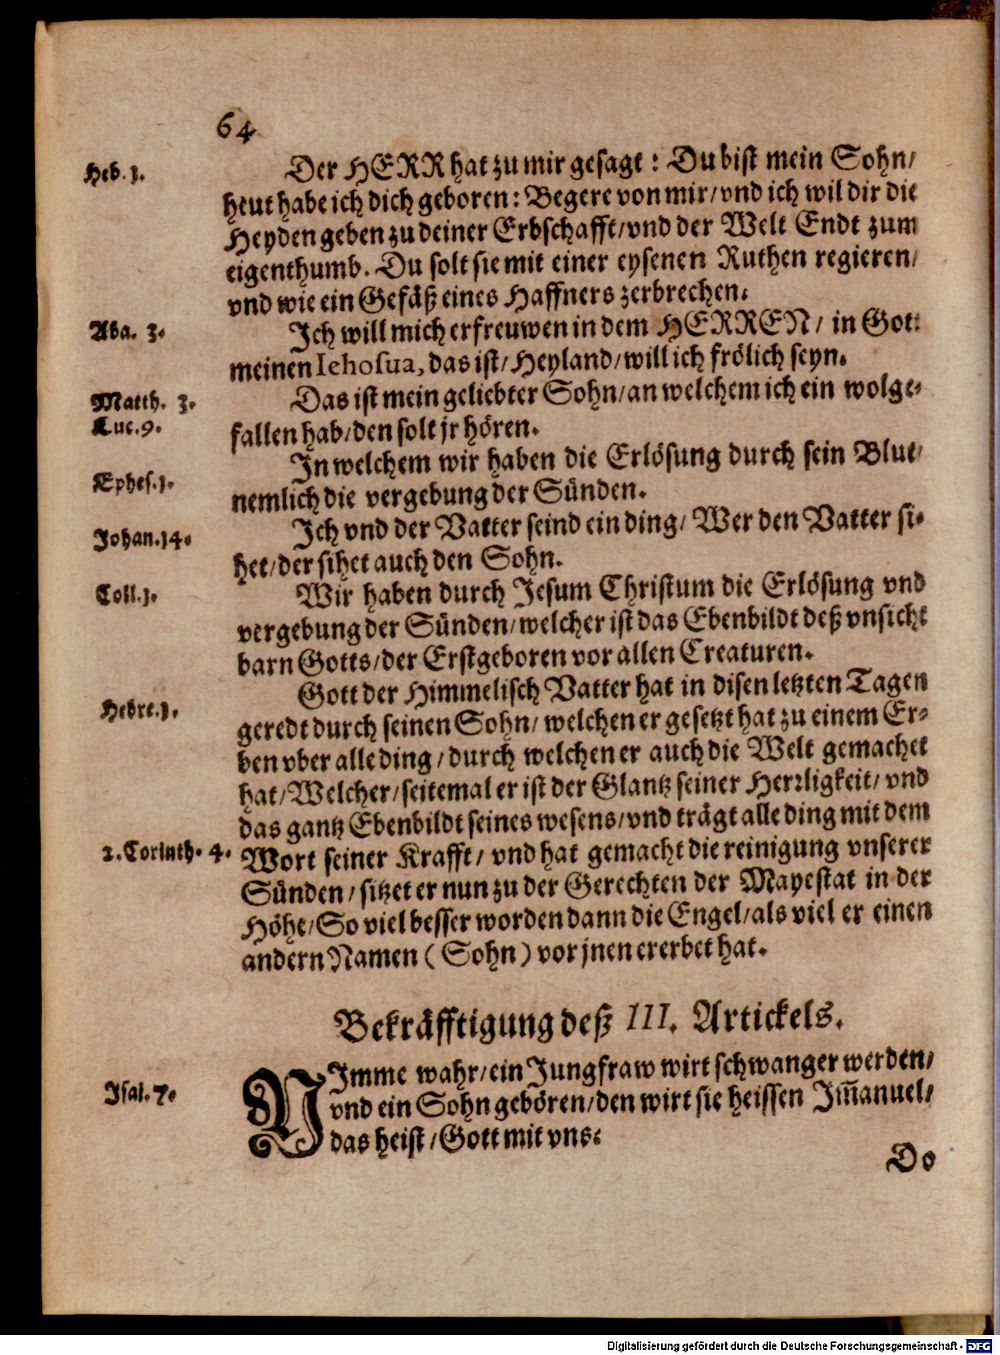 64
Heb. 1.
Der HERR hat zu mir gesagt: Du bist mein Sohn/
heut habe ich dich geboren: Begere von mir/vnd ich wil dir die
Heyden geben zu deiner Erbschafft/vnd der Welt Endt zum
eigenthumb. Du solt sie mit einer eysenen Ruthen regieren/
vnd wie ein Gefäß eines Haffners zerbrechen.
Aba. 3.
Ich will mich erfreuwen in dem HERREN/ in Gott
meinen Iehosua, das ist/Heyland/will ich frölich seyn.
Matth. 3.
Luc. 9.
Das ist mein geliebter Sohn/an welchem ich ein wolge-
fallen hab/den solt jr hören.
Ephes. 1.
In welchem wir haben die Erlösung durch sein Blut/
nemlich die vergebung der Sünden.
Johan. 14.
Ich vnd der Vatter seind ein ding/ Wer den Vatter si-
het/der sihet auch den Sohn.
Coll. 1.
Wir haben durch Jesum Christum die Erlösung vnd
vergebung der Sünden/welcher ist das Ebenbildt deß vnsicht
barn Gotts/der Erstgeboren vor allen Creaturen.
Hebre. 1.
Gott der Himmelisch Vatter hat in disen letzten Tagen
geredt durch seinen Sohn/ welchen er gesetzt hat zu einem Er-
ben vber alle ding/durch welchen er auch die Welt gemachet
hat/Welcher/seitemal er ist der Glantz seiner Herrligkeit/ vnd
das gantz Ebenbildt seines wesens/vnd trägt alle ding mit dem
2. Corinth. 4.
Wort seiner Krafft/ vnd hat gemacht die reinigung vnserer
Sünden/sitzet er nun zu der Gerechten der Mayestat in der
Höhe/So viel besser worden dann die Engel/als viel er einen
andern Namen (Sohn) vor jnen ererbet hat.
Bekräfftigung deß III. Artickels.
Isai. 7.
NImme wahr/ein Jungfraw wirt schwanger werden/
vnd ein Sohn gebören/den wirt sie heissen Im̄anuel/
das heist/Gott mit vns.
Do
Digitalisierung gefördert durch die Deutsche Forschungsgemeinschaft - DFG